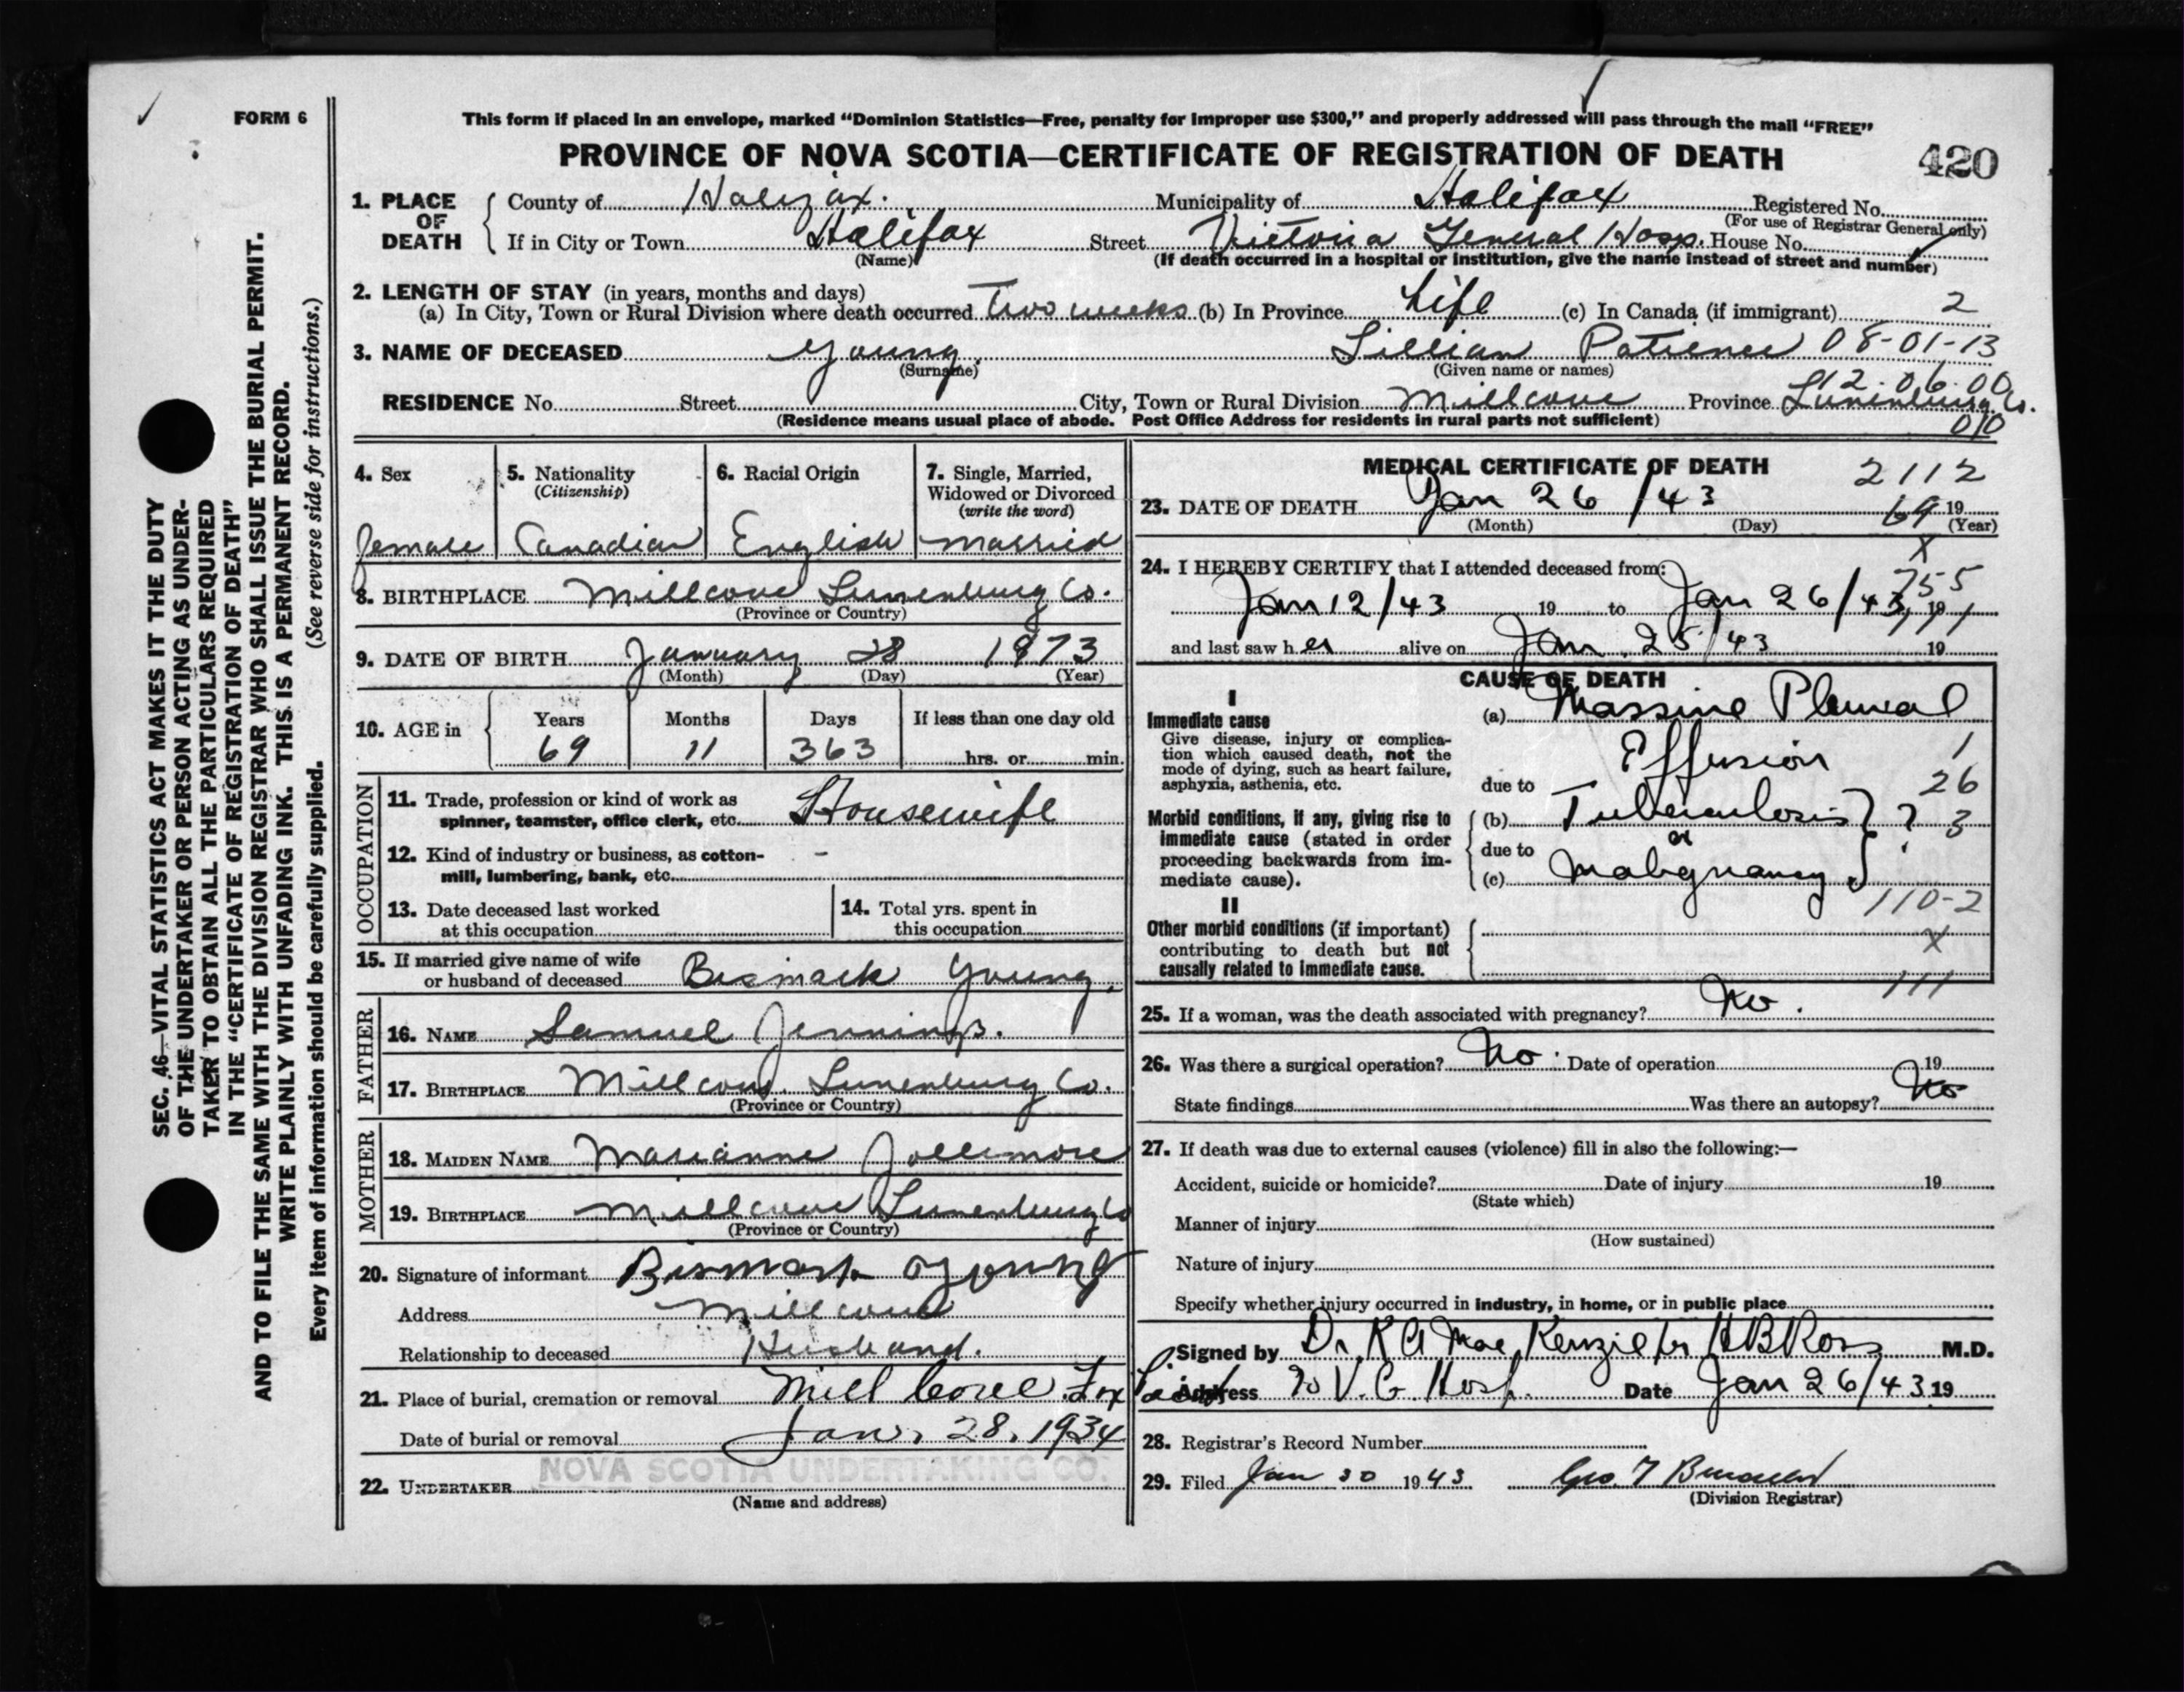 FORM 6
This form if placed in an envelope, marked “Dominion Statistics—Free, penalty for improper use $300,” and properly addressed will pass through the mail “FREE”
PROVINCE OF NOVA SCOTIA—CERTIFICATE OF REGISTRATION OF DEATH
420
1. PLACE OF DEATH
County of Halifax. Municipality of Halifax Registered No.
(For use of Registrar General only)
If in City or Town Halifax Street Victoria General Hosp. House No.
(Name) (If death occurred in a hospital or institution, give the name instead of street and number)
2. LENGTH OF STAY (in years, months and days)
(a) In City, Town or Rural Division where death occurred Two weeks (b) In Province Life (c) In Canada (if immigrant) 2
3. NAME OF DECEASED Young, Lillian Patience 08-01-13
(Surname) (Given name or names)
L12.06.00
RESIDENCE No. Street City, Town or Rural Division Millcove Province Lunenburg Co.
(Residence means usual place of abode. Post Office Address for residents in rural parts not sufficient) 010
SEC. 46—VITAL STATISTICS ACT MAKES IT THE DUTY
OF THE UNDERTAKER OR PERSON ACTING AS UNDER-
TAKER TO OBTAIN ALL THE PARTICULARS REQUIRED
IN THE “CERTIFICATE OF REGISTRATION OF DEATH”
AND TO FILE THE SAME WITH THE DIVISION REGISTRAR WHO SHALL ISSUE THE BURIAL PERMIT.
WRITE PLAINLY WITH UNFADING INK. THIS IS A PERMANENT RECORD.
Every item of information should be carefully supplied. (See reverse side for instructions.)
4. Sex
female
5. Nationality
(Citizenship)
Canadian
6. Racial Origin
English
7. Single, Married,
Widowed or Divorced
(write the word)
Married
8. BIRTHPLACE Millcove Lunenburg Co.
(Province or Country)
9. DATE OF BIRTH January 28 1873
(Month) (Day) (Year)
10. AGE in
Years Months Days If less than one day old
69 11 363 hrs. or min.
OCCUPATION
11. Trade, profession or kind of work as
spinner, teamster, office clerk, etc. Housewife
12. Kind of industry or business, as cotton-
mill, lumbering, bank, etc. -
13. Date deceased last worked
at this occupation
14. Total yrs. spent in
this occupation
15. If married give name of wife
or husband of deceased Bismack Young.
FATHER
16. NAME Samuel Jennings.
17. BIRTHPLACE Millcove Lunenburg Co.
(Province or Country)
MOTHER
18. MAIDEN NAME Marianne Jollimore
19. BIRTHPLACE Millcove Lunenburg Co
(Province or Country)
20. Signature of informant Bismark Young
Address Millcove
Relationship to deceased Husband.
21. Place of burial, cremation or removal Mill Cove Fox Point
Date of burial or removal Jan. 28. 1934
22. UNDERTAKER NOVA SCOTIA UNDERTAKING CO.
(Name and address)
MEDICAL CERTIFICATE OF DEATH 2112
23. DATE OF DEATH Jan 26 /43 69 19
(Month) (Day) (Year)
X
24. I HEREBY CERTIFY that I attended deceased from: 755
Jan 12/43 19 to Jan 26/43, 19
and last saw h er alive on Jan. 25/43 19
CAUSE OF DEATH
I
Immediate cause
Give disease, injury or complica-
tion which caused death, not the
mode of dying, such as heart failure,
asphyxia, asthenia, etc.
(a) Massive Pleural
Effusion 1
due to 26
Morbid conditions, if any, giving rise to
immediate cause (stated in order
proceeding backwards from im-
mediate cause).
(b) Tuberculosis } ? 3
due to or
(c) Malignancy }
110-2
II
Other morbid conditions (if important)
contributing to death but not
causally related to immediate cause.
X
111
25. If a woman, was the death associated with pregnancy? No.
26. Was there a surgical operation? No. Date of operation 19
State findings Was there an autopsy? No
27. If death was due to external causes (violence) fill in also the following:—
Accident, suicide or homicide? Date of injury 19
(State which)
Manner of injury
(How sustained)
Nature of injury
Specify whether injury occurred in industry, in home, or in public place
Signed by Dr. K A MacKenzie per HB Ross M.D.
Address V. G Hosp. Date Jan 26/43 19
28. Registrar's Record Number
29. Filed Jan 30 1943 Geo. T
(Division Registrar)